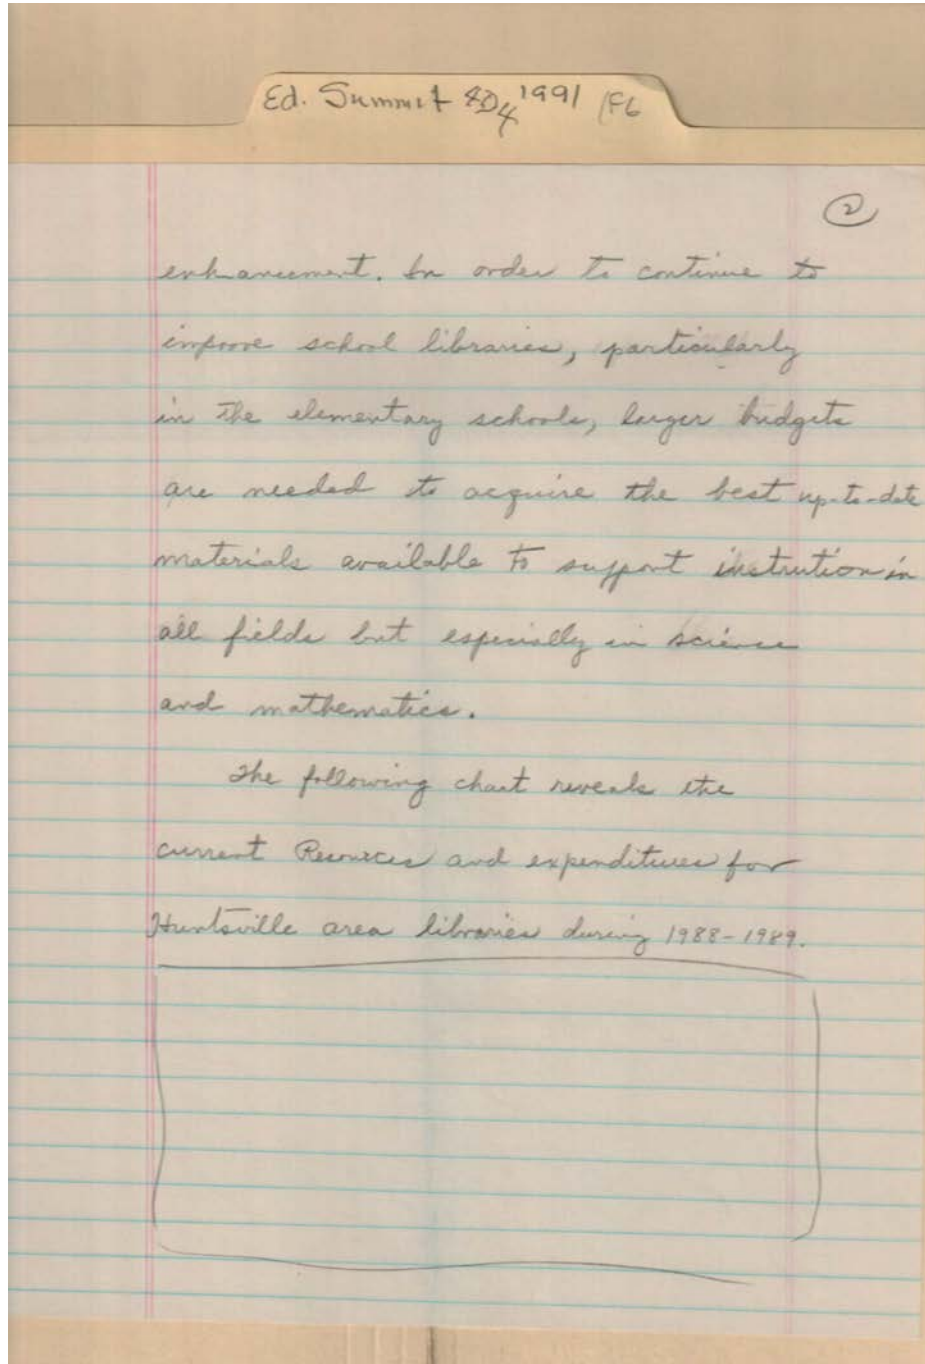 Ed. Summit 8D4 1991 /F6
2
enhancement. In order to continue to
improve school libraries, particularly
in the elementary schools, larger budgets
are needed to acquire the best up-to-date
materials available to support instrution in
all fields but especially in science
and mathematics.
The following chart reveals the
current Resources and expenditures for
Huntsville area libraries during 1988-1989.